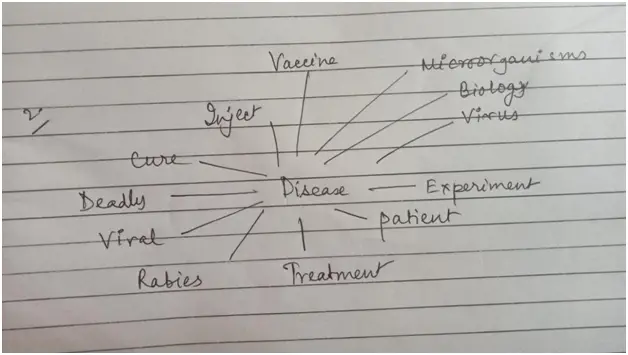 Vaccine
Microorganisms
Biology
Virus
2/
Inject
Cure
Disease
Experiment
Deadly
patient
Viral
Rabies
Treatment